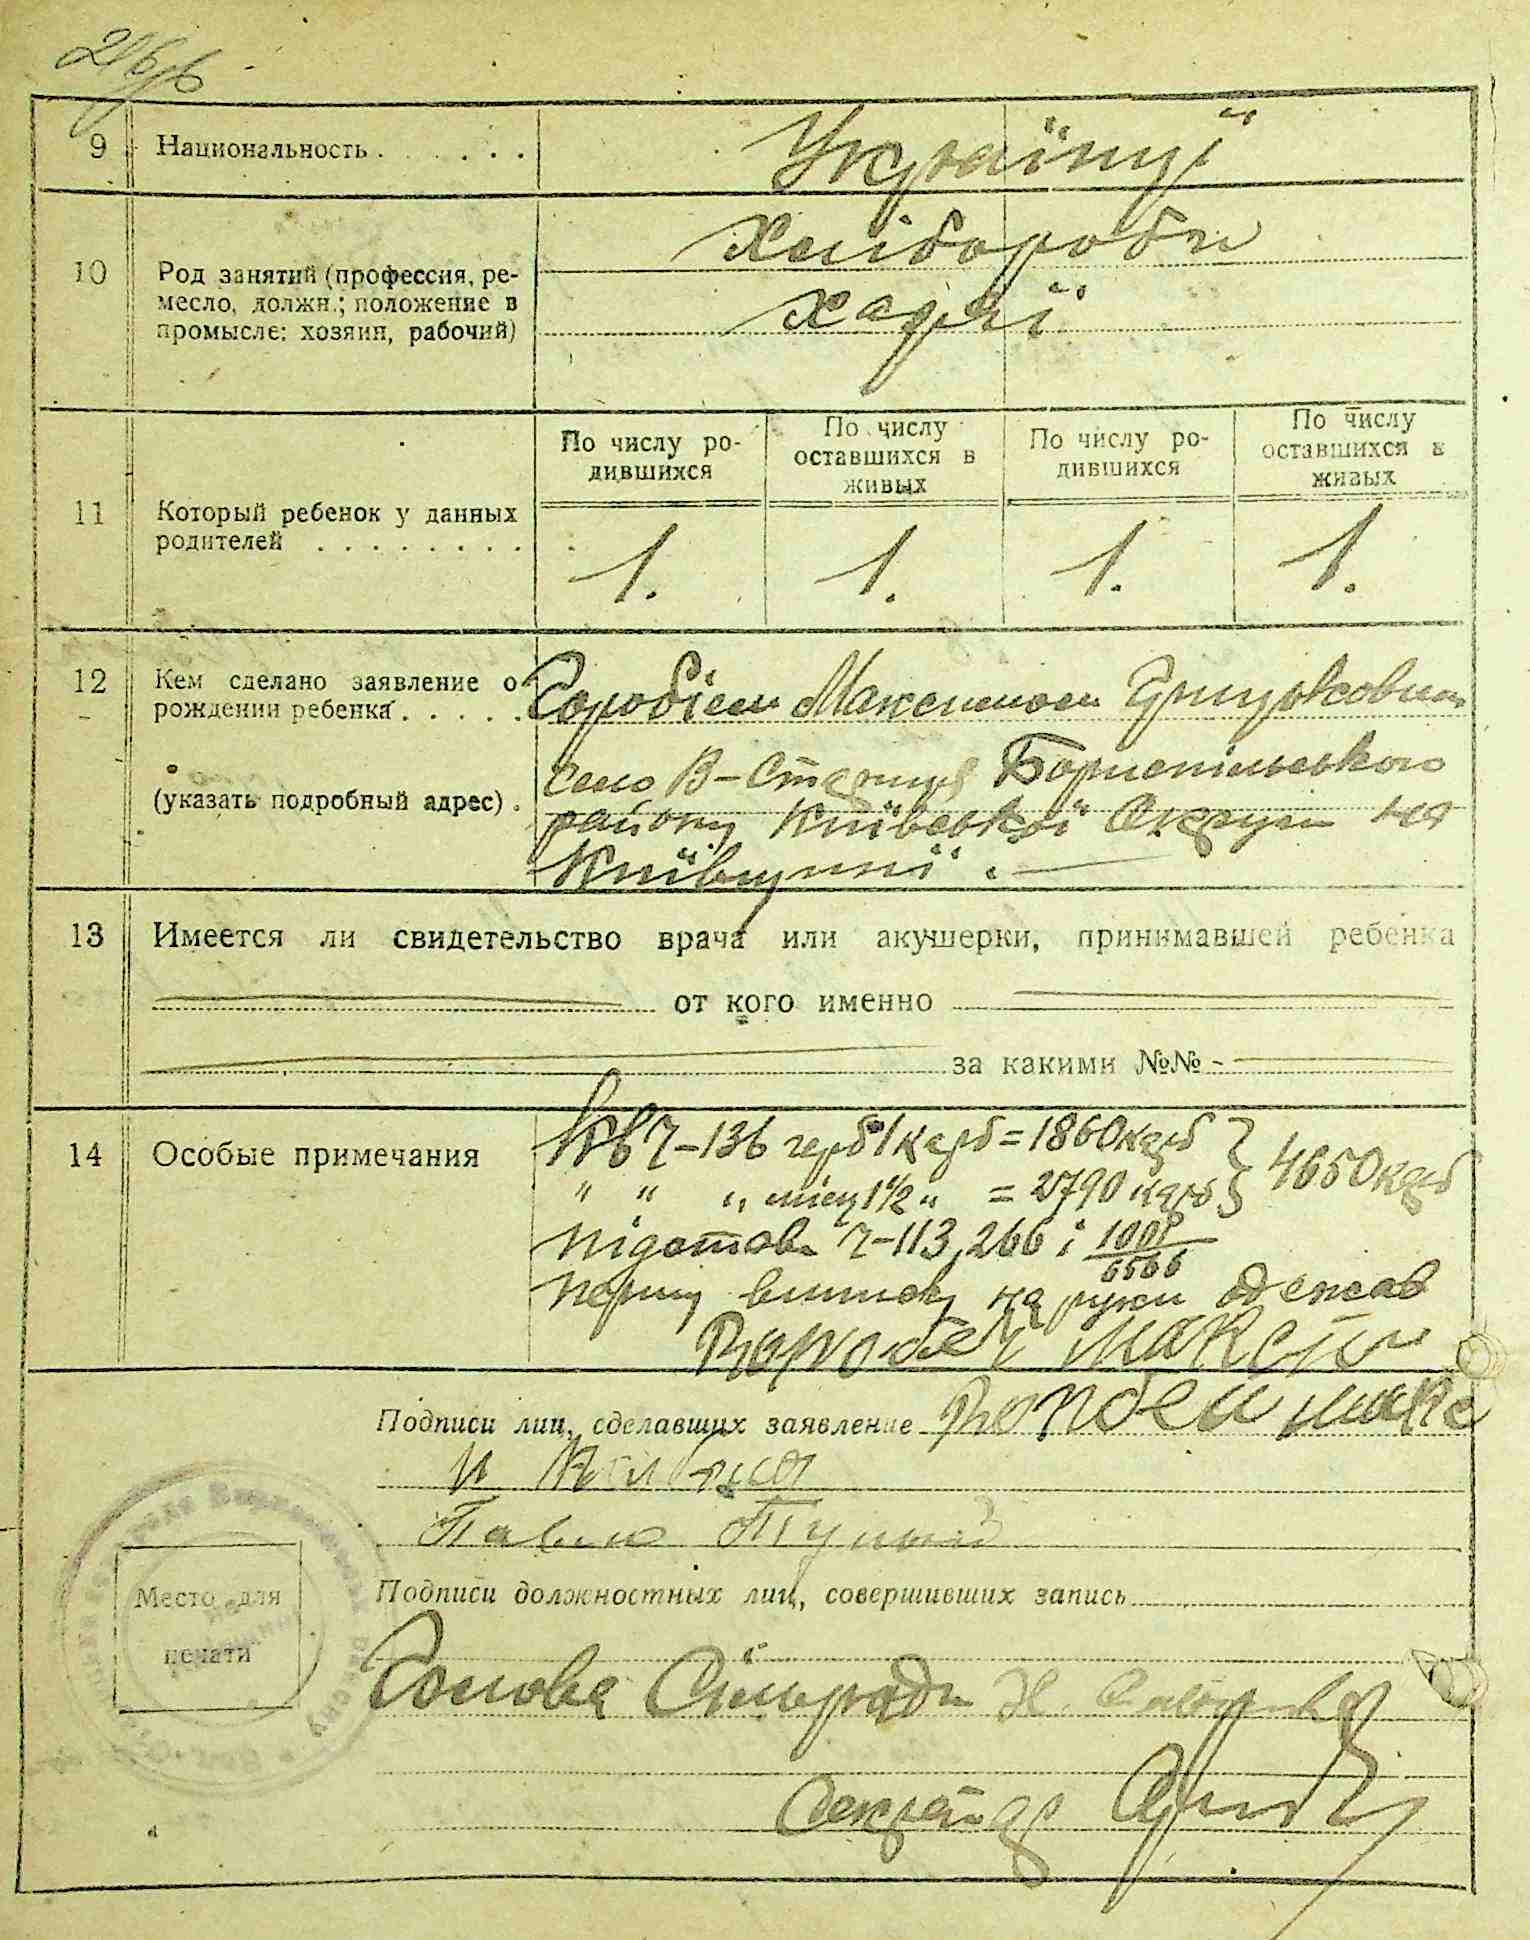 9 Национальность . . . . . . Українці
10 Род занятий (профессия, ре-
месло, должн.; положение в
промысле: хозяин, рабочий)
Хлібороби
Хазяї
11 Который ребенок у данных
родителей . . . . . . . .
По числу ро-
дившихся
По числу
оставшихся в
живых
По числу ро-
дившихся
По числу
оставшихся в
живых
1. 1. 1. 1.
12 Кем сделано заявление о
рождении ребенка . . . . .
(указать подробный адрес) .
Горобієм Максимом Грицьковим
село В-Стариця Бориспільського
району Київської Округи на
Київщині. —
13 Имеется ли свидетельство врача или акушерки, принимавшей ребенка
от кого именно
за какими №№ -
14 Особые примечания
Кв Ч-136 герб 1 карб = 1860 карб } 4650 карб
" " " місц 1½ " = 2790 карб
підстав Ч-113, 266 і
першу виписку на руки одержав
Горобей Максим
Подписи лиц, сделавших заявление Горобей Макс
Павло
Место для
печати
Подписи должностных лиц, совершивших запись
Голова Сільради
Секретар